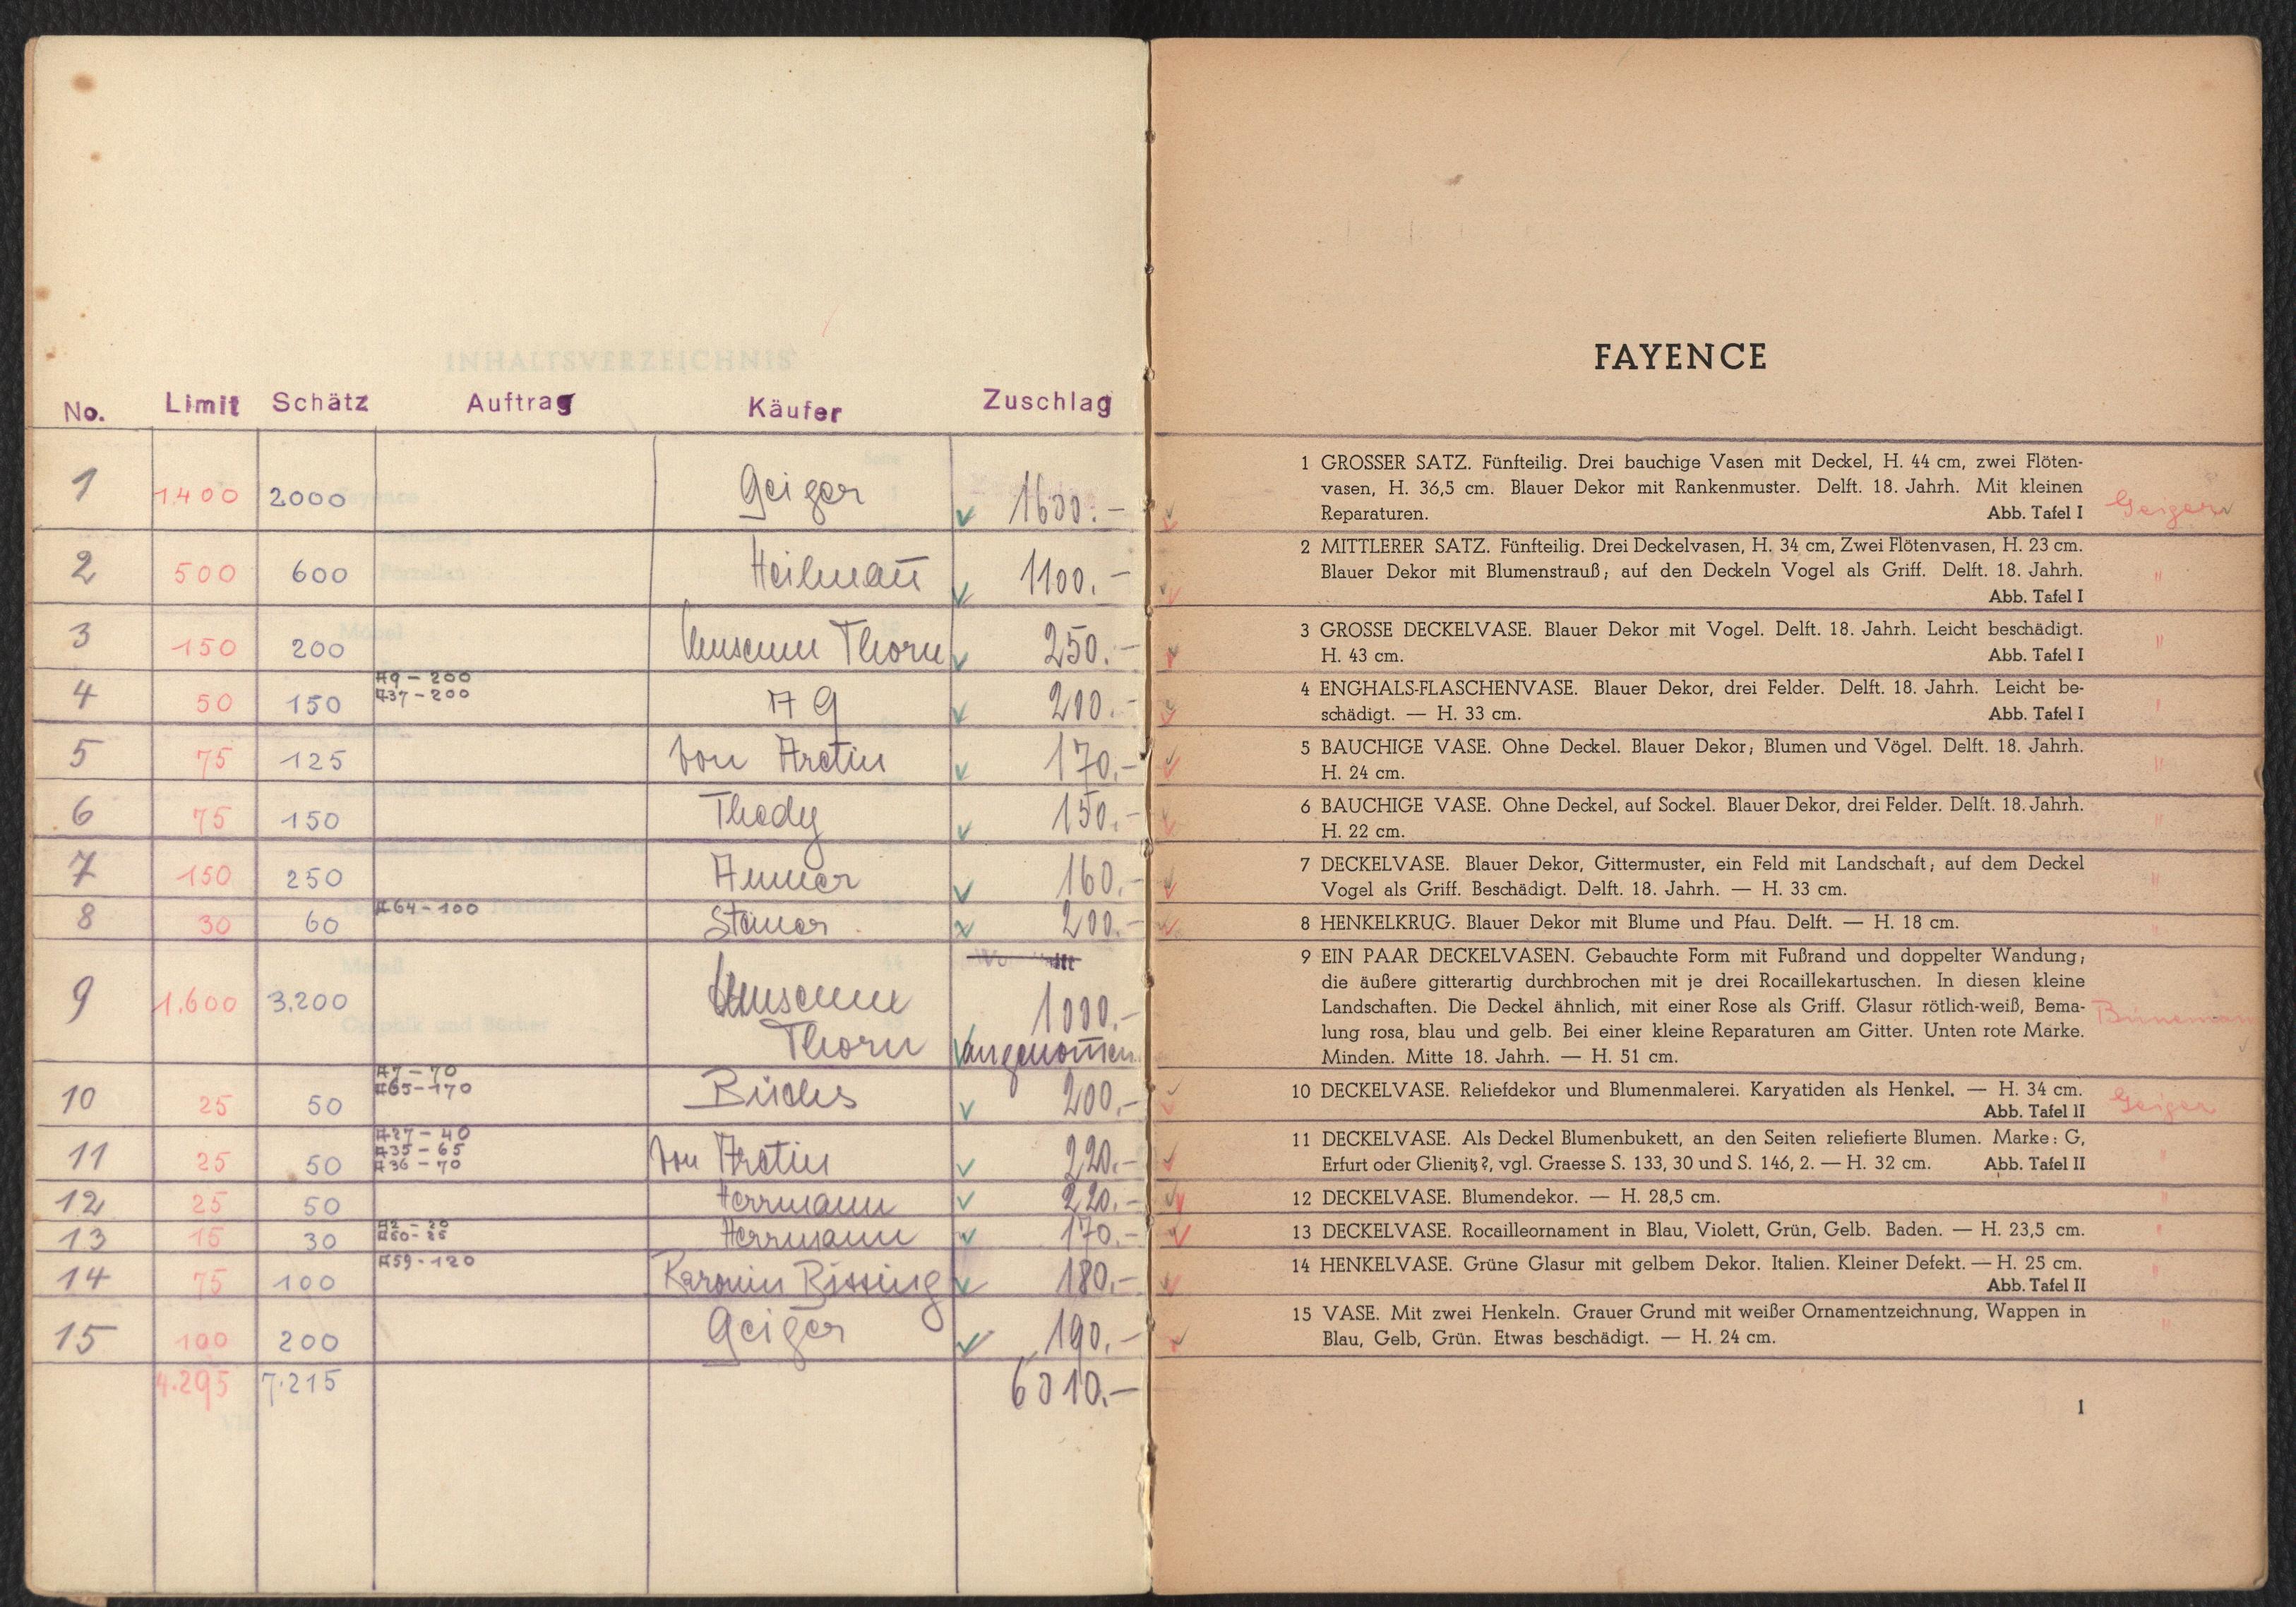 No. Limit Schätz Auftrag Käufer Zuschlag
1 1.400 2000 Geiger 1600.-
2 500 600 Heilmañ 1100.-
3 150 200 Museum Thorn 250.-
4 50 150 A9-200 A37-200 A 9 200.-
5 75 125 von Aretin 170.-
6 75 150 150.-
7 150 250 160.-
8 30 60 A64-100 200.-
9 1.600 3.200 Museum Thorn 1000.- angenom̄en
10 25 50 A7-70 A65-170 200.-
11 25 50 A27-40 A35-65 A36-70 von Aretin 220.-
12 25 50 Herrmann 220.-
13 15 30 Herrmann 170.-
14 75 100 A59-120 Bissing 180.-
15 100 200 Geiger 190.-
4.295 7.215 6010.-
INHALTSVERZEICHNIS
FAYENCE
1 GROSSER SATZ. Fünfteilig. Drei bauchige Vasen mit Deckel, H. 44 cm, zwei Flöten-
vasen, H. 36,5 cm. Blauer Dekor mit Rankenmuster. Delft. 18. Jahrh. Mit kleinen
Reparaturen. Abb. Tafel I Geiger
2 MITTLERER SATZ. Fünfteilig. Drei Deckelvasen, H. 34 cm, Zwei Flötenvasen, H. 23 cm.
Blauer Dekor mit Blumenstrauß; auf den Deckeln Vogel als Griff. Delft. 18. Jahrh. "
Abb. Tafel I
3 GROSSE DECKELVASE. Blauer Dekor mit Vogel. Delft. 18. Jahrh. Leicht beschädigt. "
H. 43 cm. Abb. Tafel I
4 ENGHALS-FLASCHENVASE. Blauer Dekor, drei Felder. Delft. 18. Jahrh. Leicht be-
schädigt. — H. 33 cm. Abb. Tafel I "
5 BAUCHIGE VASE. Ohne Deckel. Blauer Dekor; Blumen und Vögel. Delft. 18. Jahrh.
H. 24 cm. "
6 BAUCHIGE VASE. Ohne Deckel, auf Sockel. Blauer Dekor, drei Felder. Delft. 18. Jahrh.
H. 22 cm. "
7 DECKELVASE. Blauer Dekor, Gittermuster, ein Feld mit Landschaft; auf dem Deckel
Vogel als Griff. Beschädigt. Delft. 18. Jahrh. — H. 33 cm. "
8 HENKELKRUG. Blauer Dekor mit Blume und Pfau. Delft. — H. 18 cm. "
9 EIN PAAR DECKELVASEN. Gebauchte Form mit Fußrand und doppelter Wandung;
die äußere gitterartig durchbrochen mit je drei Rocaillekartuschen. In diesen kleine
Landschaften. Die Deckel ähnlich, mit einer Rose als Griff. Glasur rötlich-weiß, Bema-
lung rosa, blau und gelb. Bei einer kleine Reparaturen am Gitter. Unten rote Marke.
Minden. Mitte 18. Jahrh. — H. 51 cm.
10 DECKELVASE. Reliefdekor und Blumenmalerei. Karyatiden als Henkel. — H. 34 cm.
Abb. Tafel II Geiger
11 DECKELVASE. Als Deckel Blumenbukett, an den Seiten reliefierte Blumen. Marke: G,
Erfurt oder Glienitz?, vgl. Graesse S. 133, 30 und S. 146, 2. — H. 32 cm. Abb. Tafel II "
12 DECKELVASE. Blumendekor. — H. 28,5 cm. "
13 DECKELVASE. Rocailleornament in Blau, Violett, Grün, Gelb. Baden. — H. 23,5 cm. "
14 HENKELVASE. Grüne Glasur mit gelbem Dekor. Italien. Kleiner Defekt. — H. 25 cm. "
Abb. Tafel II
15 VASE. Mit zwei Henkeln. Grauer Grund mit weißer Ornamentzeichnung, Wappen in
Blau, Gelb, Grün. Etwas beschädigt. — H. 24 cm. "
1